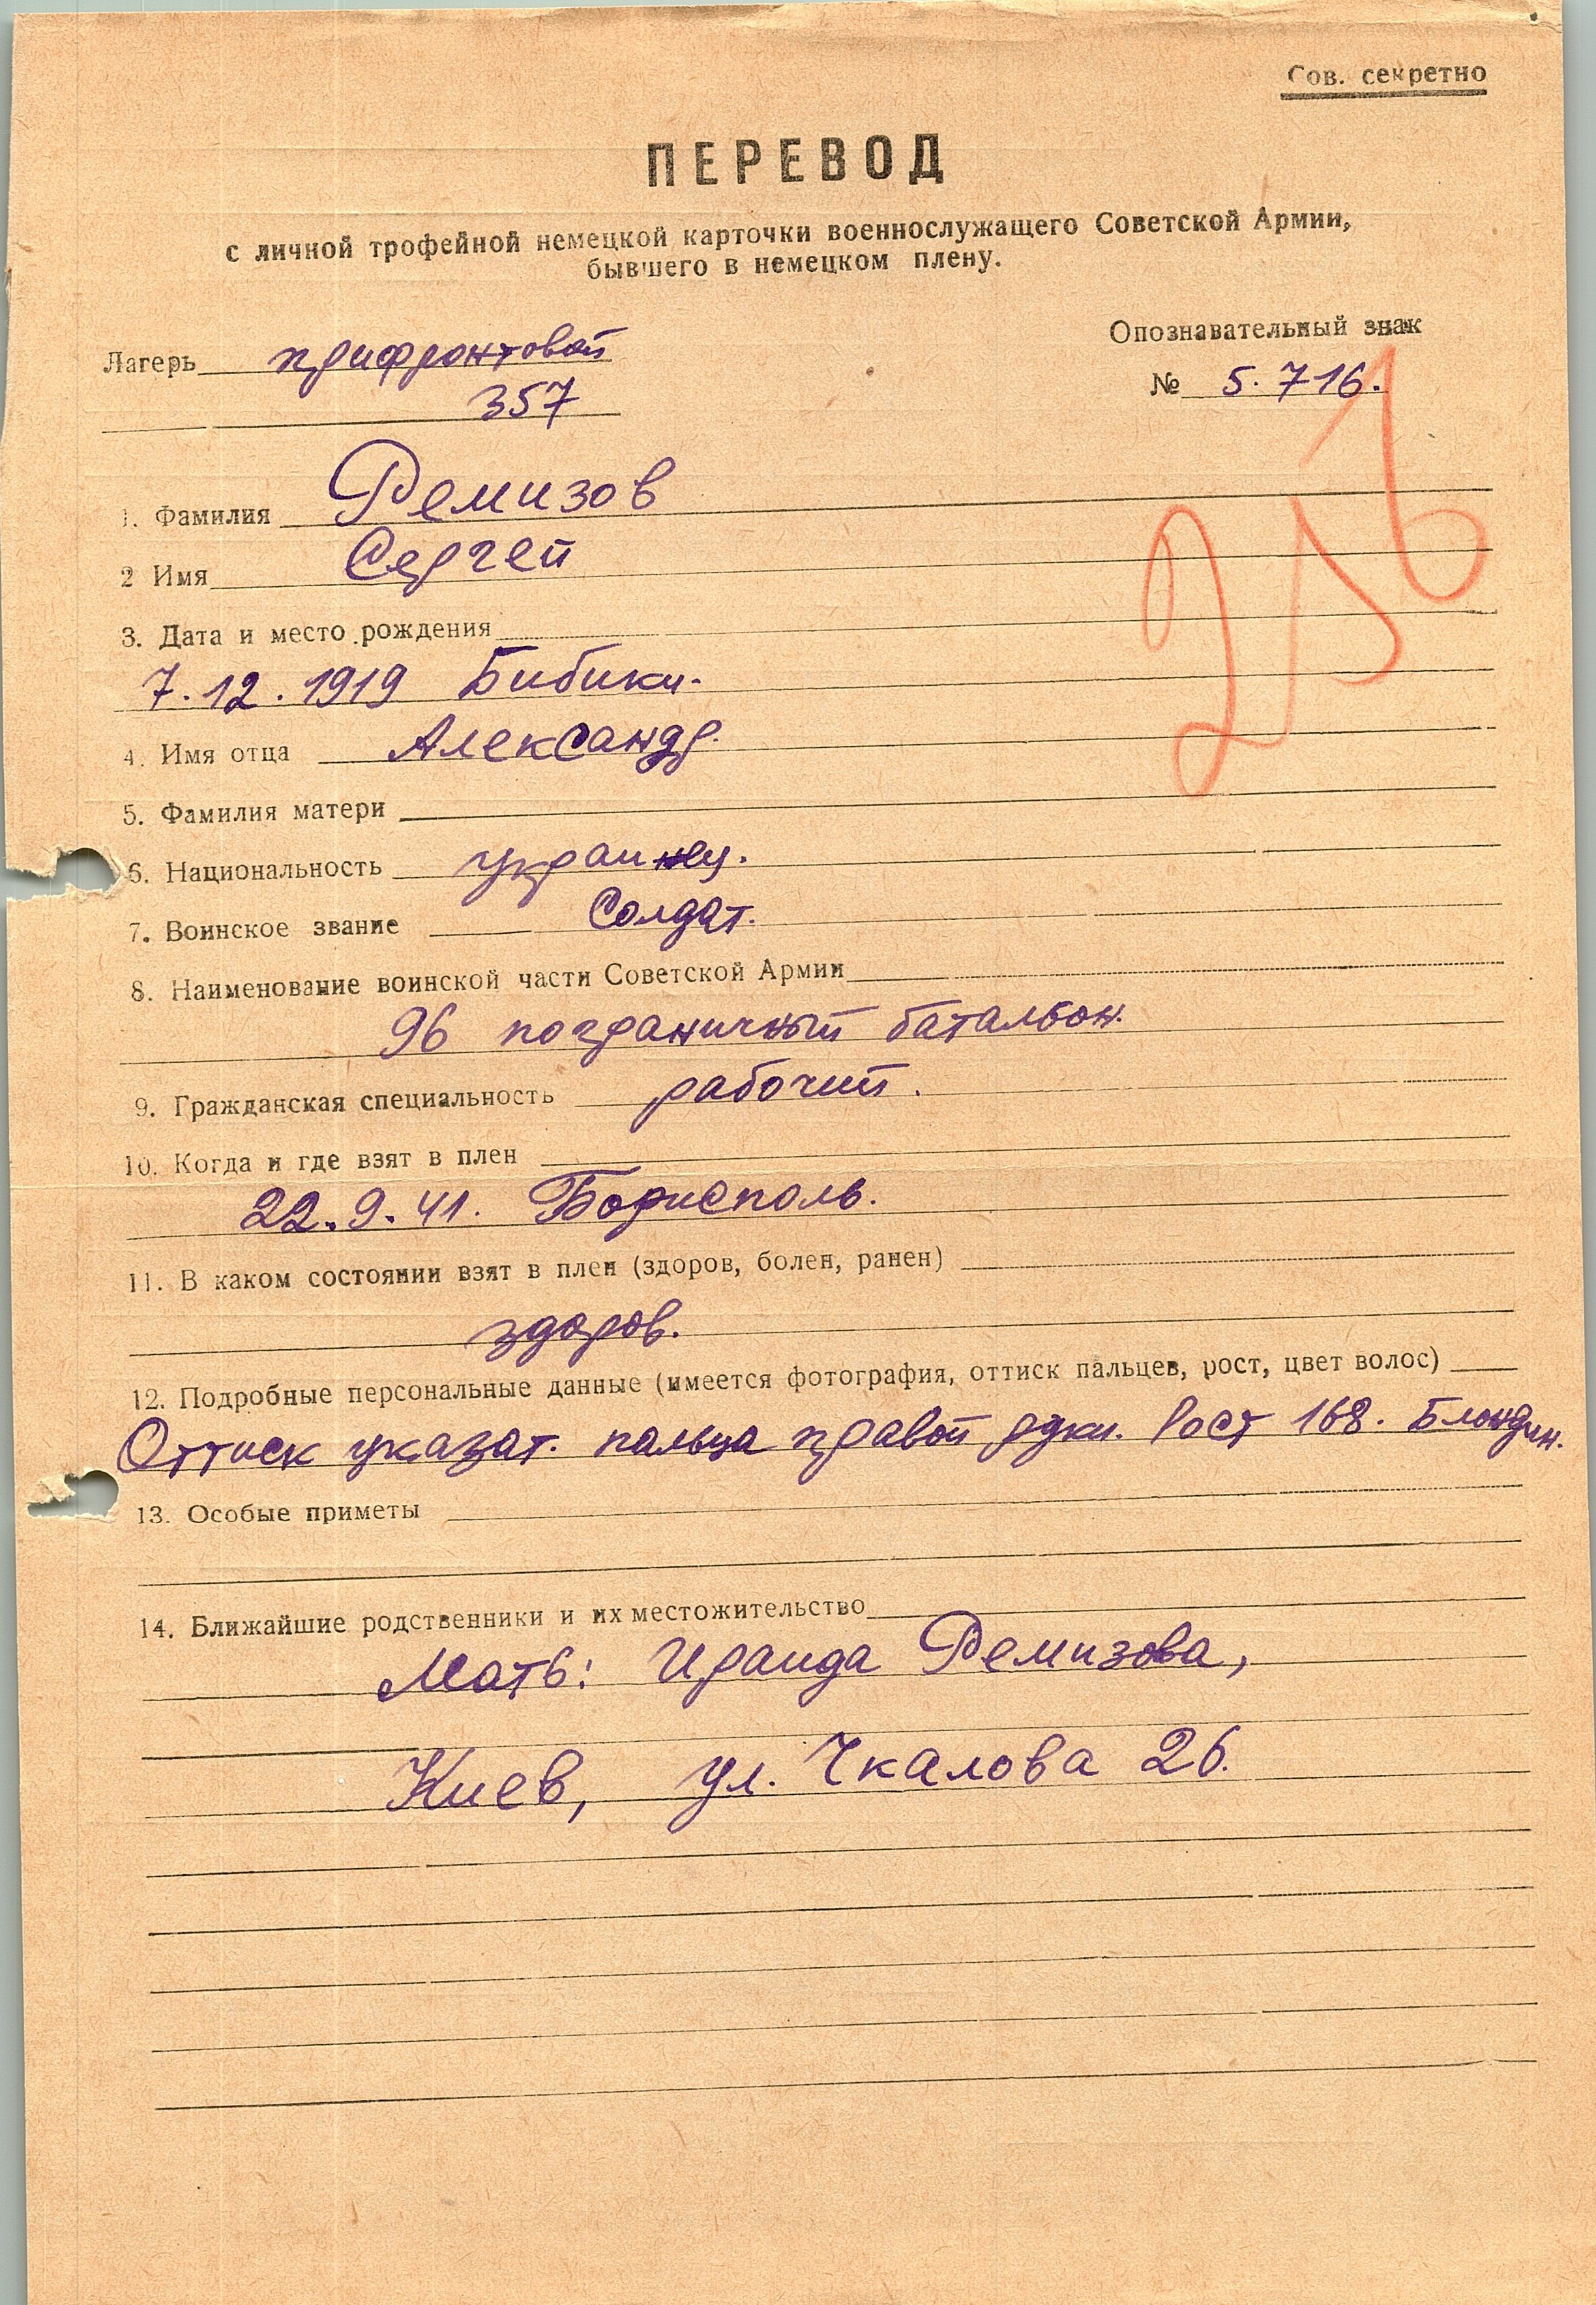 Сов. секретно
ПЕРЕВОД
с личной трофейной немецкой карточки военнослужащего Советской Армии,
бывшего в немецком плену.
Лагерь прифронтовой
357
Опознавательный знак
№ 5.716.
1. Фамилия Ремизов
2 Имя Сергей
3. Дата и место рождения
7.12.1919 Бибики.
4. Имя отца Александр.
5. Фамилия матери
6. Национальность украинец.
7. Воинское звание Солдат.
8. Наименование воинской части Советской Армии
96 пограничный батальон.
9. Гражданская специальность рабочий.
10. Когда и где взят в плен
22.9.41. Борисполь.
11. В каком состоянии взят в плен (здоров, болен, ранен)
здоров.
12. Подробные персональные данные (имеется фотография, оттиск пальцев, рост, цвет волос)
Оттиск указат. пальца правой руки. Рост 168. Блондин.
13. Особые приметы
14. Ближайшие родственники и их местожительство
Мать: Ираида Ремизова,
Киев, ул. Чкалова 26.